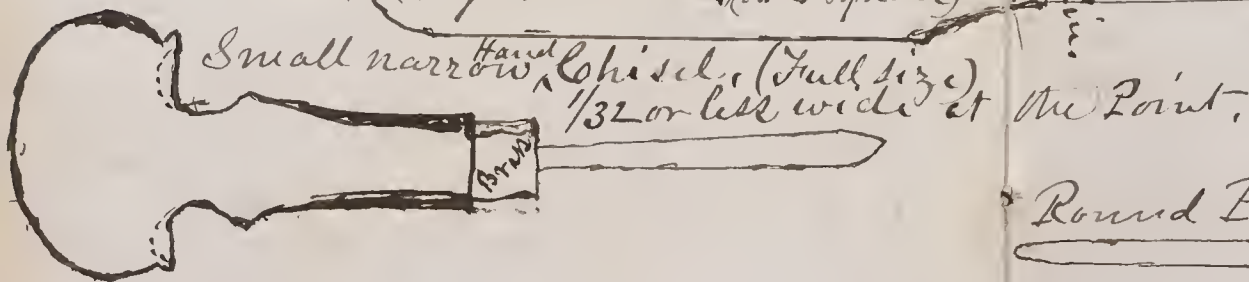 Small narrow Hand Chisel, (Full size)
1/32 or less wide at the Point.
Brass
Round